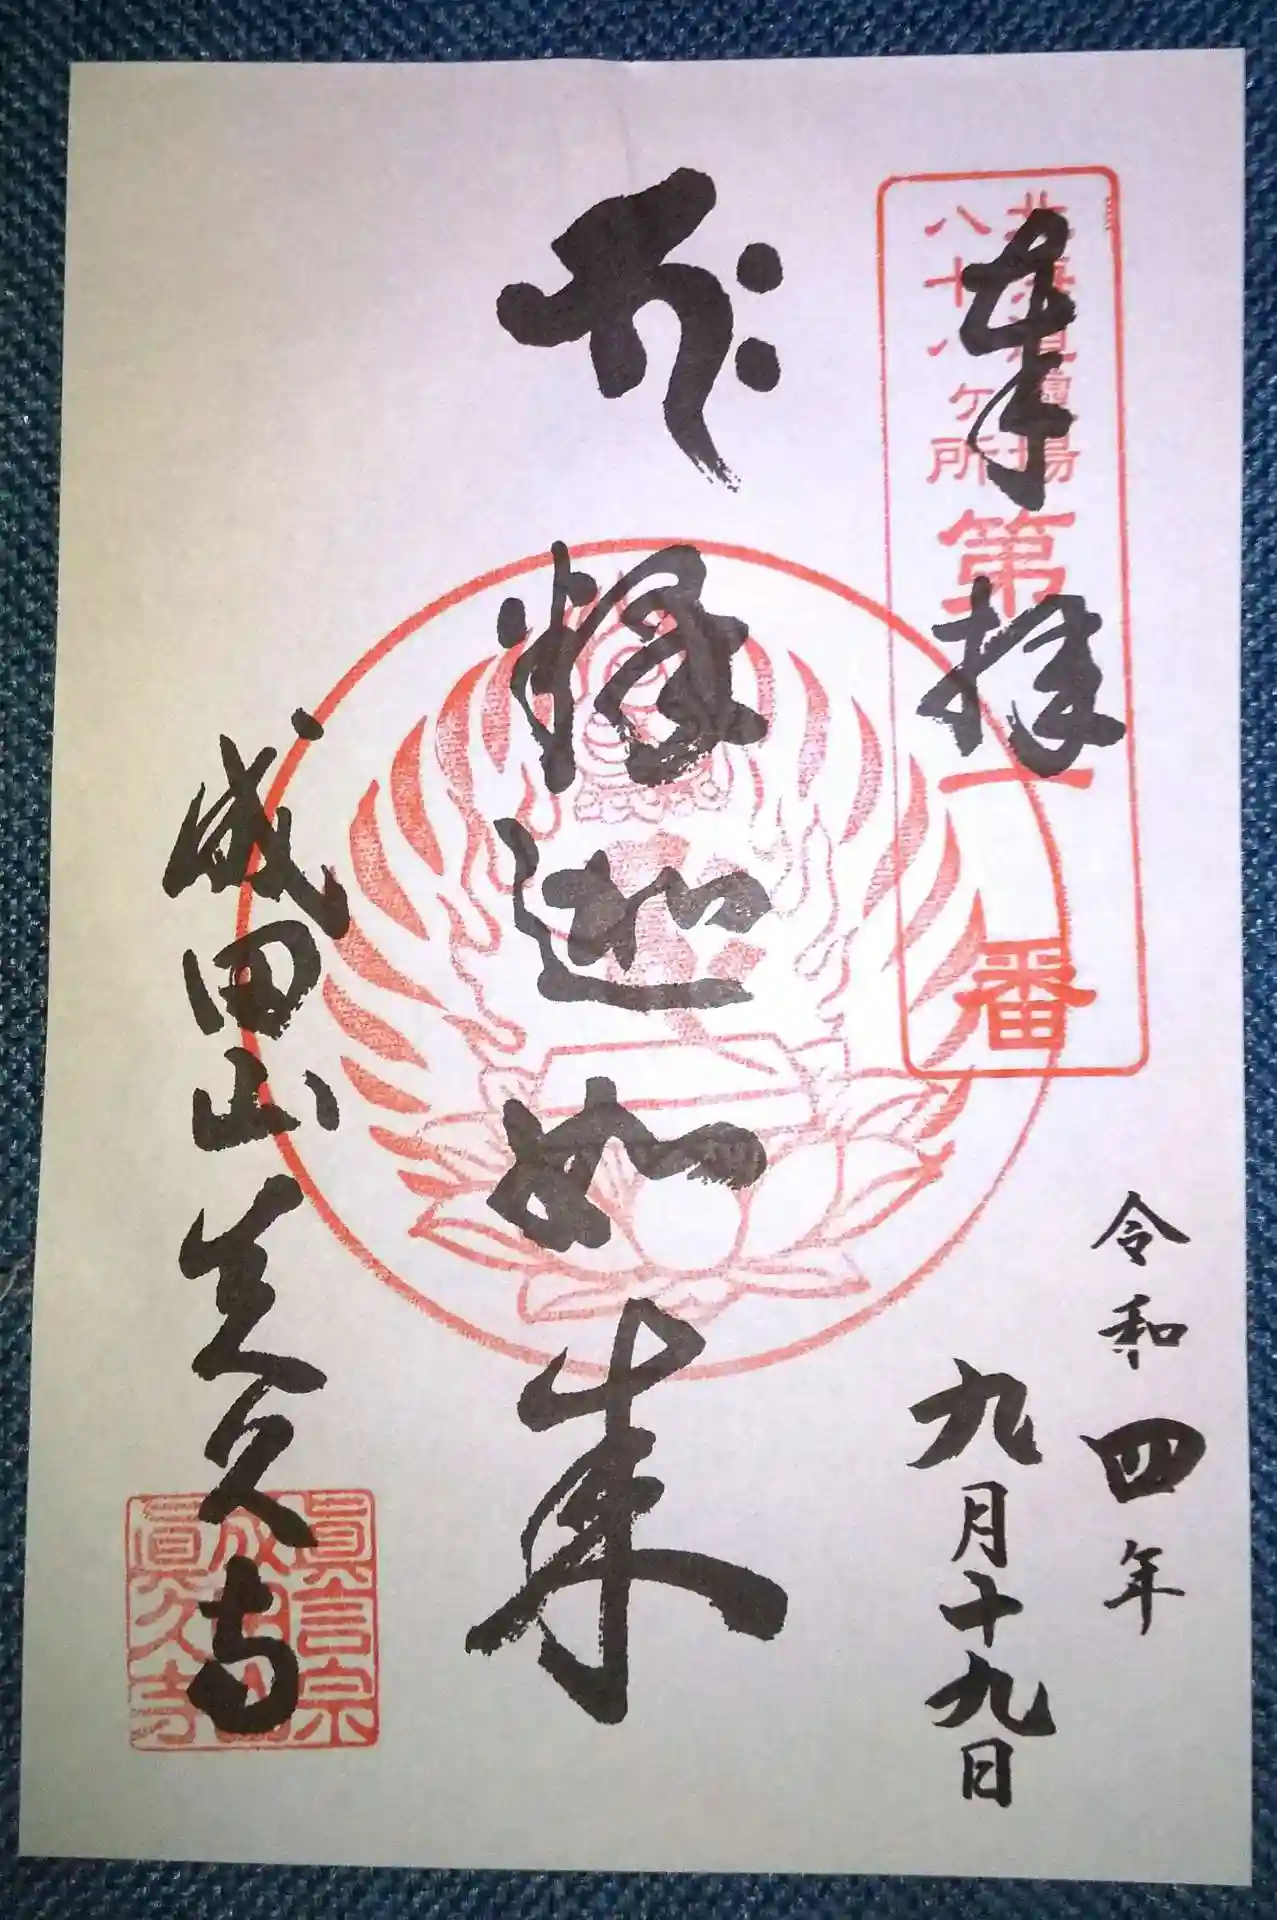 奉拝
北海道靈場
八十八ヶ所
第一番
令和四年
九月十九日
釋迦如来
成田山真久寺
眞言宗
成田山
眞久寺